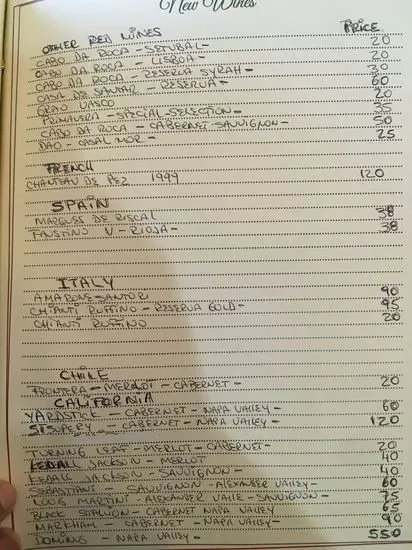 New Wines
OTHER RED WINES PRICE
CABO DA ROCA - SETUBAL - 20
CABO DA ROCA - LISBOA - 20
CABO DA ROCA - RESERVA SYRAH - 30
CASA DE SANTAR - RESERVA - 60
GRAO VASCO 20
PRIMAVERA - SPECIAL SELECTION - 35
CABO DA ROCA - CABERNET SAUVIGNON - 50
DAO - CASAL MOR - 25
FRENCH
CHANTEAU DE PEZ 1999 120
SPAIN
MARQUES DE RISCAL 38
FAUSTINO V - RIOJA - 38
ITALY
AMARONE - SANTORI 90
CHIANTI RUFFINO - RESERVA GOLD - 95
CHIANTI RUFFINO 20
CHILE
FRONTERA - MERLOT - CABERNET - 20
CALIFORNIA
YARDSTICK - CABERNET - NAPA VALLEY - 60
ST SUPERY - CABERNET - NAPA VALLEY - 120
TURNING LEAF - MERLOT - CABERNET - 20
KENDALL JACKSON - MERLOT 40
KENDALL JACKSON - SAUVIGNON - 40
SEBASTIANI - SAUVIGNON - ALEXANDER VALLEY - 60
LOUIS MARTINI - ALEXANDER VALLE - SAUVIGNON - 75
BLACK STALLION - CABERNET NAPA VALLEY 65
MARKHAM - CABERNET - NAPA VALLEY - 90
DOMINUS - NAPA VALLEY - 550